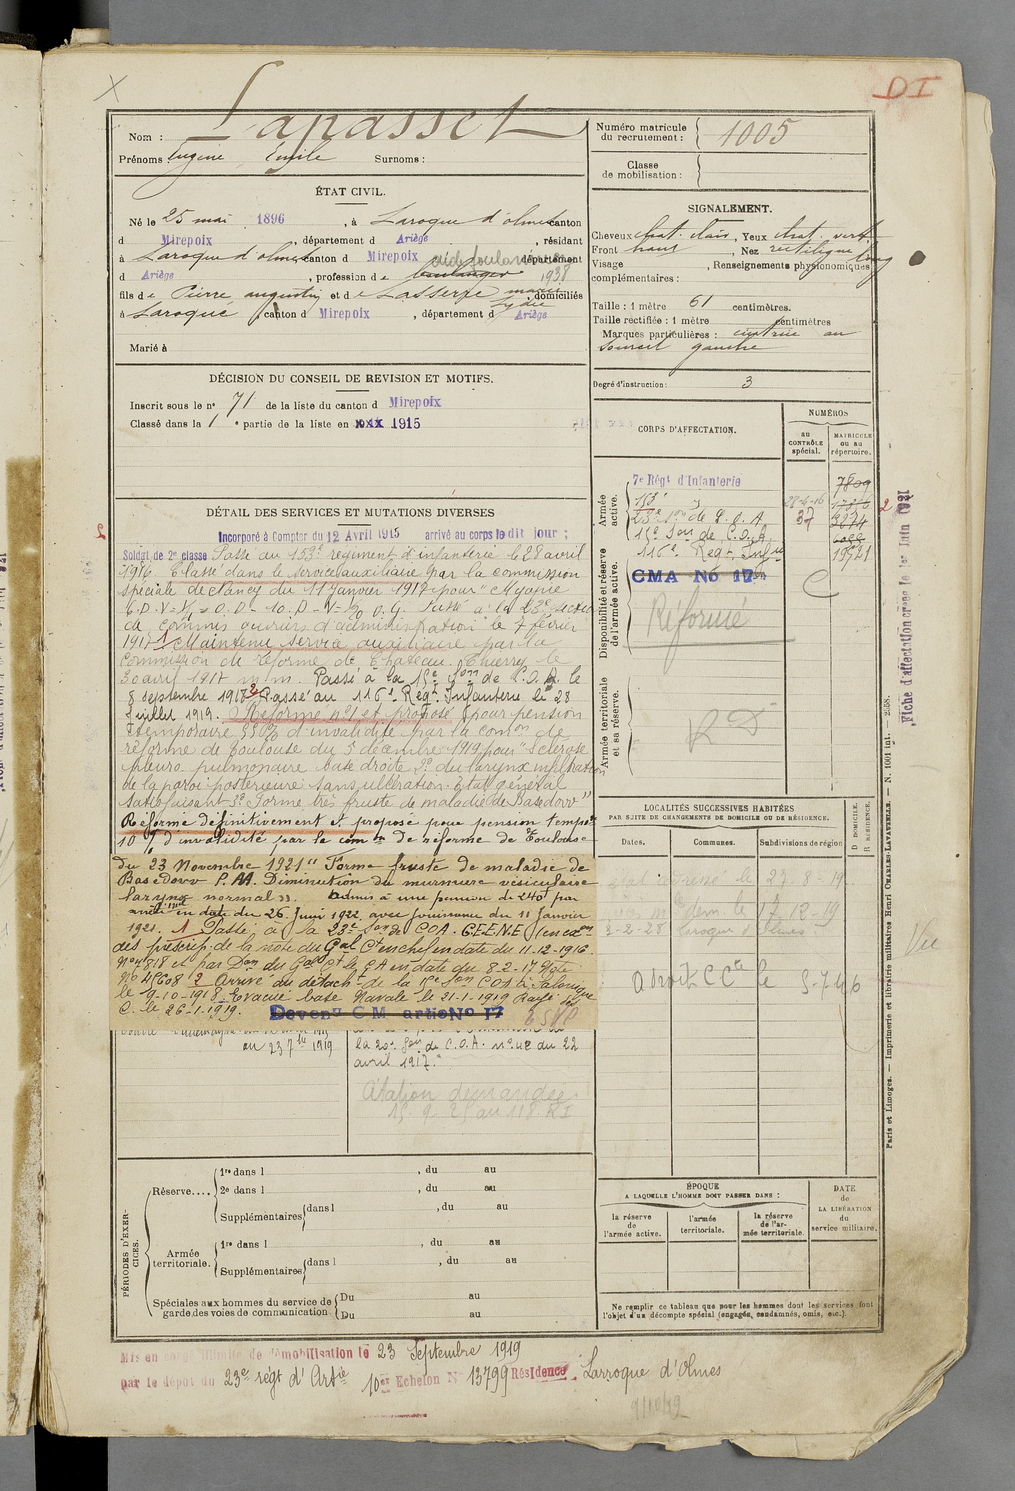 DI
Nom : Lapasset
Prénoms Eugène Emile Surnoms :
Numéro matricule du recrutement : 1005
Classe de mobilisation :
ÉTAT CIVIL.
Né le 25 mai 1896, à Laroque d'olmes canton
d Mirepoix, département d Ariège, résidant
à Laroque d'olmes, canton d Mirepoix département
d Ariège, profession de boulanger 1938
fils de Pierre, augustin et de Lasserre, domiciliés
à Laroque, canton d Mirepoix, département d Ariège
Marié à
SIGNALEMENT.
Cheveux chat. clair, Yeux chat. vert
Front haut, Nez rectiligne long
Visage , Renseignements physionomiques
complémentaires :
Taille : 1 mètre 61 centimètres.
Taille rectifiée : 1 mètre centimètres
Marques particulières : cicatrice au
sourcil gauche
Degré d'instruction : 3
DÉCISION DU CONSEIL DE REVISION ET MOTIFS.
Inscrit sous le n° 71 de la liste du canton d Mirepoix
Classé dans la 1e partie de la liste en 1915
CORPS D'AFFECTATION.
NUMÉROS
au CONTRÔLE spécial.
MATRICULE ou au répertoire.
Armée active.
7e Régt d'Infanterie 7809
153e 28-4-16
23e Son de C.O.A 37
15e Son de C.O.A.
116e Régt Infie
Disponibilité et réserve de l'armée active.
CMA No 17
Réformé
Armée territoriale et sa réserve.
RD
Fiche d'affectation le 1er Juin 1921
DÉTAIL DES SERVICES ET MUTATIONS DIVERSES
Incorporé à Compter du 12 Avril 1915 arrivé au corps le dit jour ;
Soldat de 2e classe Passé au 153e régiment d'infanterie le 28 avril
1916. Classé dans le service auxiliaire par la commission
spéciale de Nancy du 11 janvier 1917 pour "Myopie
Passé à la 23e section
de commis ouvriers d'administration le 7 février
1917. Maintenu service auxiliaire par la
commission de réforme de Chateau-Thierry le
30 avril 1917 m/m. Passé à la 15e Son de C.O.A. le
8 septembre 1918. 2 Passé au 116e Régt Infanterie le 28
juillet 1919. Réformé n°1 et proposé pour pension
temporaire d'invalidité par la comon de
réforme de Toulouse du 5 décembre 1919 pour "sclérose
pleuro pulmonaire base droite 2° du larynx infiltration
de la paroi postérieure sans ulcération. Etat général
satisfaisant 3° Forme très fruste de maladie de Basedow"
Réformé définitivement et proposé pour pension tempore
10 % d'invalidité par la comon de réforme de Toulouse
du 23 Novembre 1921 "Forme fruste de maladie de
Basedow P.M. Diminution du murmure vésiculaire
larynx normal". Admis à une pension de 240f par
arrêté en date du 26 Juin 1922 avec jouissance du 11 Janvier
1921. 1 Passé à la 23e Son de COA. G.E.E.N.E (en exon
des prescrip. de la note du Gal Ct en chef en date du 11-12-1916
No 4818 et par Don du Gal Ct le GA en date du 8-2-17 Note
No 45608 2 Arrivé du détacht de la 15e Son COA à Salonique
le 9-10-1918. Evacué base Navale le 21-1-1919 Rayé des
C. le 26-1-1919. Devenu CM artie No 17
au 23 7bre 1919
la 20e Son de C.O.A. n° 42 du 22
avril 1917."
Citation demandée
15-9-25 au 118 RI
LOCALITÉS SUCCESSIVES HABITÉES
PAR SUITE DE CHANGEMENTS DE DOMICILE OU DE RÉSIDENCE.
Dates. Communes. Subdivisions de région
D DOMICILE. R RÉSIDENCE.
le 27-8-19
le 17-12-19
2-2-28 Laroque d'Olmes
a droit CCte le 5-7-46
Vu
PÉRIODES D'EXERCICES.
Réserve.... 1re dans l , du au
2e dans l , du au
Supplémentaires dans l , du au
Armée territoriale. 1re dans l , du au
Supplémentaires dans l , du au
Spéciales aux hommes du service de garde des voies de communication Du au
Du au
ÉPOQUE
A LAQUELLE L'HOMME DOIT PASSER DANS :
la réserve de l'armée active.
l'armée territoriale.
la réserve de l'armée territoriale.
DATE de LA LIBÉRATION du service militaire.
Ne remplir ce tableau que pour les hommes dont les services font
l'objet d'un décompte spécial (engagés, condamnés, omis, etc.).
Paris et Limoges. — Imprimerie et librairie militaires Henri CHARLES-LAVAUZELLE. — N. 1001 int. — 2558.
Mis en congé illimité de démobilisation le 23 Septembre 1919
par le dépôt du 23e régt d'Artie 10er Echelon N° 13799 Résidence Larroque d'Olmes